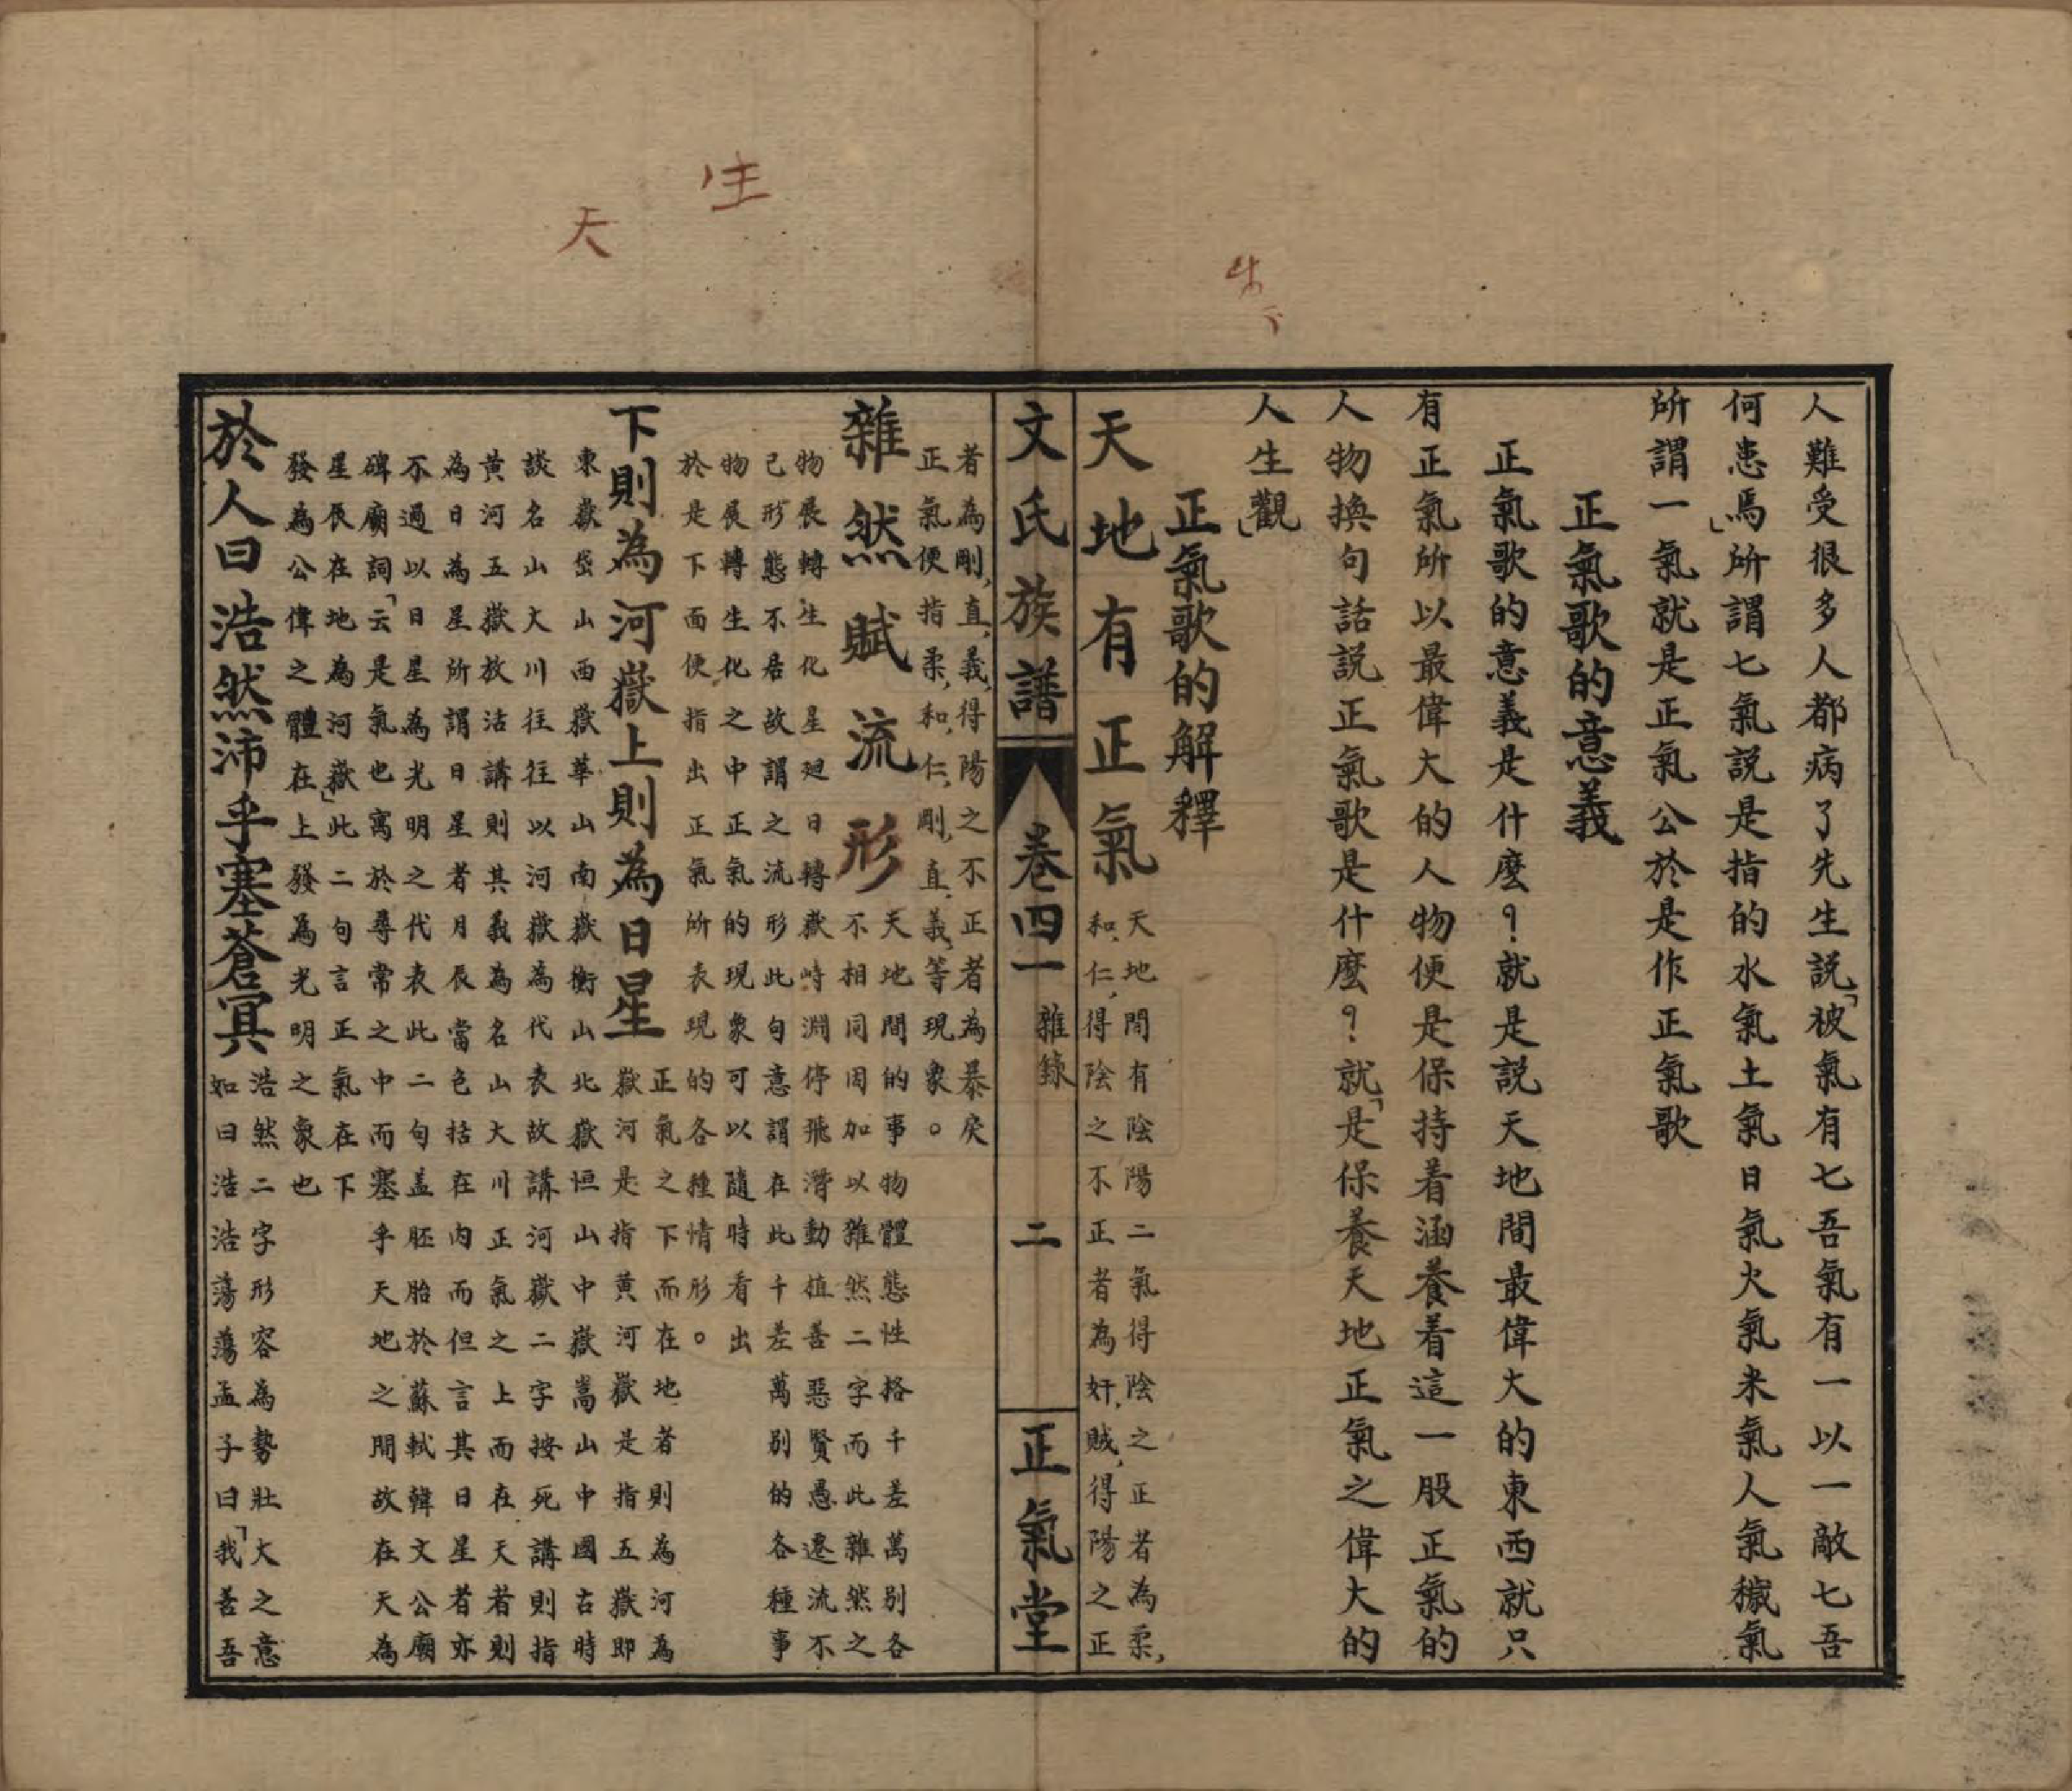 人難受很多人都病了先生説「被氣有七吾氣有一以一敵七吾
何患焉」所謂七氣説是指的水氣土氣日氣火氣米氣人氣穢氣
所謂一氣就是正氣公於是作正氣歌
正氣歌的意義
正氣歌的意義是什麼？就是説天地間最偉大的東西就只
有正氣所以最偉大的人物便是保持着涵養着這一股正氣的
人物換句話説正氣歌是什麼？就「是保養天地正氣之偉大的
人生觀」
正氣歌的解釋
天地有正氣
天地間有陰陽二氣得陰之正者為柔、
和、仁、得陰之不正者為奸、賊、得陽之正
文氏族譜
卷四一
雜錄
二
正氣堂
者為剛、直、義、得陽之不正者為暴戾
正氣便指柔、和、仁、剛、直、義、等現象。
雜然賦流形
天地間的事物體態性格千差萬別各
不相同因加以雜然二字而此雜然之
物展轉生化星廻日轉嶽峙淵停飛潛動植善惡賢愚遷流不
已形態不居故謂之流形此句意謂在此千差萬別的各種事
物展轉生化之中正氣的現象可以隨時看出
於是下面便指出正氣所表現的各種情形。
下則為河嶽上則為日星
正氣之下而在地者則為河為
嶽河是指黄河嶽是指五嶽即
東嶽岱山西嶽華山南嶽衡山北嶽恒山中嶽嵩山中國古時
談名山大川往往以河嶽為代表故講河嶽二字按死講則指
黄河五嶽放活講則其義為名山大川正氣之上而在天者則
為日為星所謂日星者月辰當包括在内而但言其日星者亦
不過以日星為光明之代表此二句盖胚胎於蘇軾韓文公廟
碑廟詞「云是氣也寓於尋常之中而塞乎天地之間故在天為
星辰在地為河嶽」此二句言正氣在下
發為公偉之體在上發為光明之象也
於人曰浩然沛乎塞蒼冥
浩然二字形容為勢壯大之意
如曰浩浩蕩蕩孟子曰「我善吾
生
天